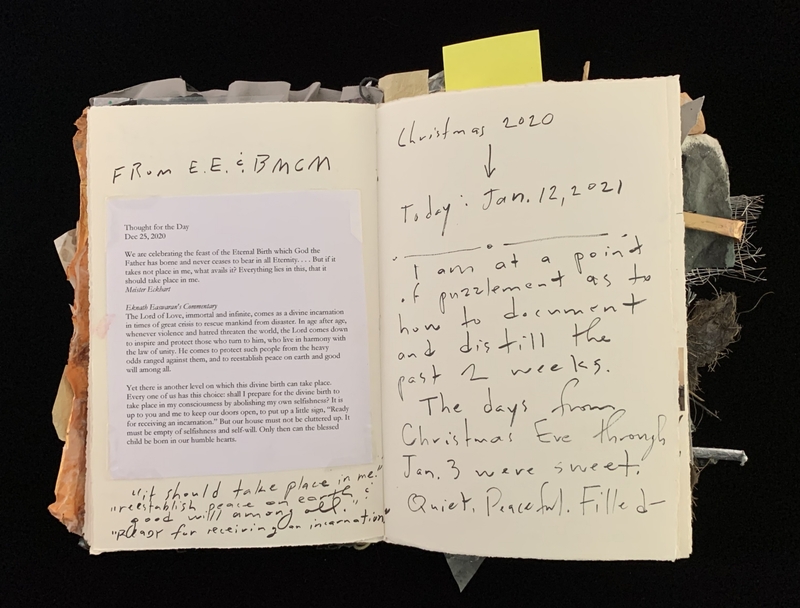 FROM E.E. & BMCM
Thought for the Day
Dec 25, 2020
We are celebrating the feast of the Eternal Birth which God the
Father has borne and never ceases to bear in all Eternity. . . . But if it
takes not place in me, what avails it? Everything lies in this, that it
should take place in me.
Meister Eckhart
Eknath Easwaran's Commentary
The Lord of Love, immortal and infinite, comes as a divine incarnation
in times of great crisis to rescue mankind from disaster. In age after age,
whenever violence and hatred threaten the world, the Lord comes down
to inspire and protect those who turn to him, who live in harmony with
the law of unity. He comes to protect such people from the heavy
odds ranged against them, and to reestablish peace on earth and good
will among all.
Yet there is another level on which this divine birth can take place.
Every one of us has this choice: shall I prepare for the divine birth to
take place in my consciousness by abolishing my own selfishness? It is
up to you and me to keep our doors open, to put up a little sign, "Ready
for receiving an incarnation." But our house must not be cluttered up. It
must be empty of selfishness and self-will. Only then can the blessed
child be born in our humble hearts.
"it should take place in me."
"reestablish peace on earth &
good will among all."
for receiving an incarnation"
Christmas 2020
↓
Today: Jan. 12, 2021
I am at a point
of puzzlement as to
how to document
and distill the
past 2 weeks.
The days from
Christmas Eve through
Jan. 3 were sweet.
Quiet. Peaceful. Filled—